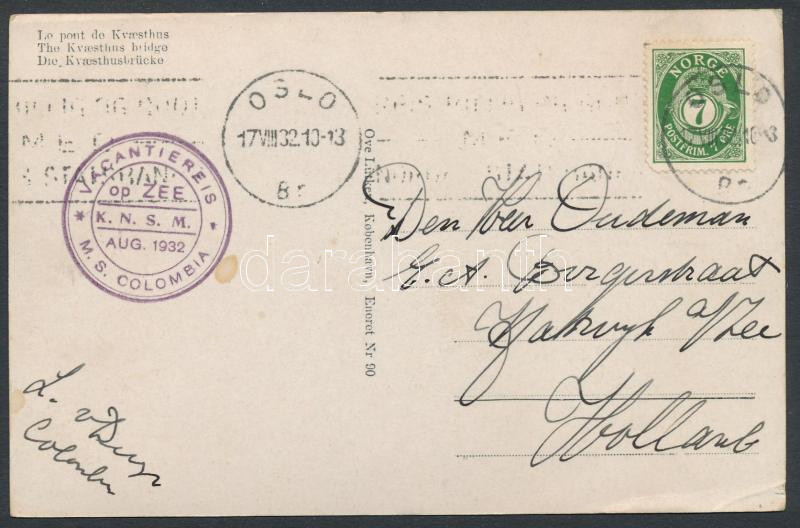 Le pont de Kvæsthus
The Kvæsthus bridge
Die Kvæsthusbrücke
OSLO
17 VIII 32. 10-13
Br
VACANTIEREIS
op ZEE
K. N. S. M.
AUG. 1932
M.S. COLOMBIA
NORGE
7
POSTFRIM. 7 ØRE
OSLO
Br
København, Eneret Nr 90
Den Heer Oudeman
E. A. Borgerstraat
Katwyk a/Zee
Holland
L.
darabanth